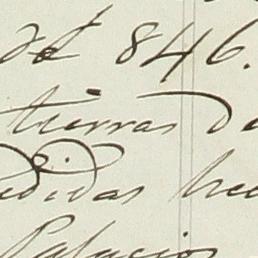 de 1846.
tierras de
edidas hec
Palacio